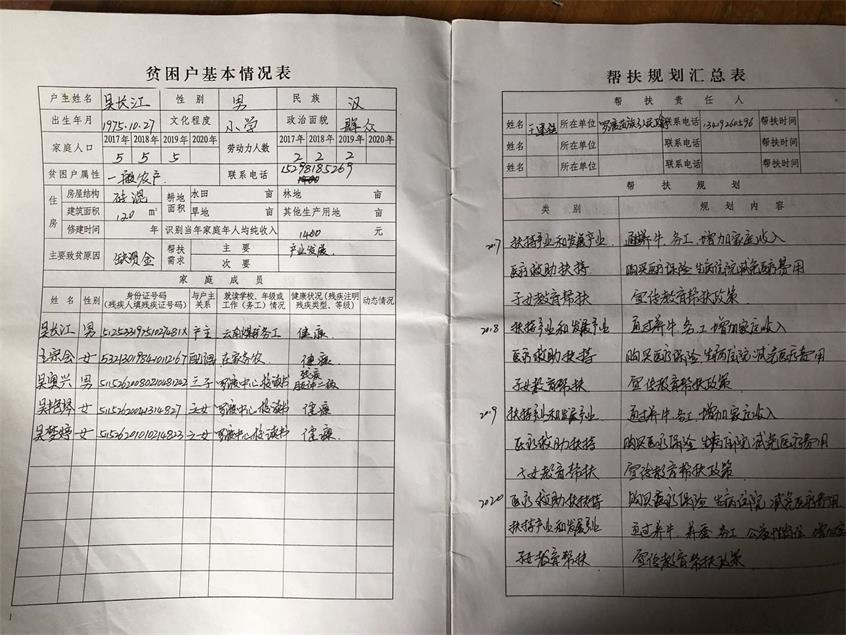 贫困户基本情况表
户主姓名 吴长江 性别 男 民族 汉
出生年月 1975.10.27 文化程度 小学 政治面貌 群众
家庭人口 2017年 2018年 2019年 2020年 劳动力人数 2017年 2018年 2019年 2020年
5 5 5 2 2 2
贫困户属性 一般农户 联系电话 15298185269
住房 房屋结构 砖混 耕地面积 水田 亩 林地 亩
建筑面积 120 m² 旱地 亩 其他生产用地 亩
修建时间 年 识别当年家庭年人均纯收入 1400 元
主要致贫原因 缺资金 帮扶需求 主要 产业发展
次要
家庭成员
姓名 性别 身份证号码(残疾人填残疾证号码) 与户主关系 就读学校、年级或工作(务工)情况 健康状况(残疾注明残疾类型、等级) 动态情况
吴长江 男 户主 云南煤矿务工 健康
女 配偶 在家务农 健康
吴奥兴 男 之子 罗渡中心校读书 残疾 二级
女 之女 罗渡中心校读书 健康
吴梦婷 女 之女 罗渡中心校读书 健康
1
帮扶规划汇总表
帮扶责任人
姓名 所在单位 联系电话 13419260596 帮扶时间
姓名 所在单位 联系电话 帮扶时间
姓名 所在单位 联系电话 帮扶时间
帮扶规划
类别 规划内容
2017 扶持产业和发展产业 通过养牛、务工,增加家庭收入
医疗救助扶持 购买医疗保险 生病住院减免医疗费用
子女教育帮扶 宣传教育帮扶政策
2018 扶持产业和发展产业 通过养牛、务工,增加家庭收入
医疗救助扶持 购买医疗保险 生病住院减免医疗费用
子女教育帮扶 宣传教育帮扶政策
2019 扶持产业和发展产业 通过养牛、务工,增加家庭收入
医疗救助扶持 购买医疗保险 生病住院减免医疗费用
子女教育帮扶 宣传教育帮扶政策
2020 医疗救助扶持 购买医疗保险 生病住院 减免医疗费用
扶持产业和发展产业 通过养牛、养蚕、务工、公益性岗位
子女教育帮扶 宣传教育帮扶政策